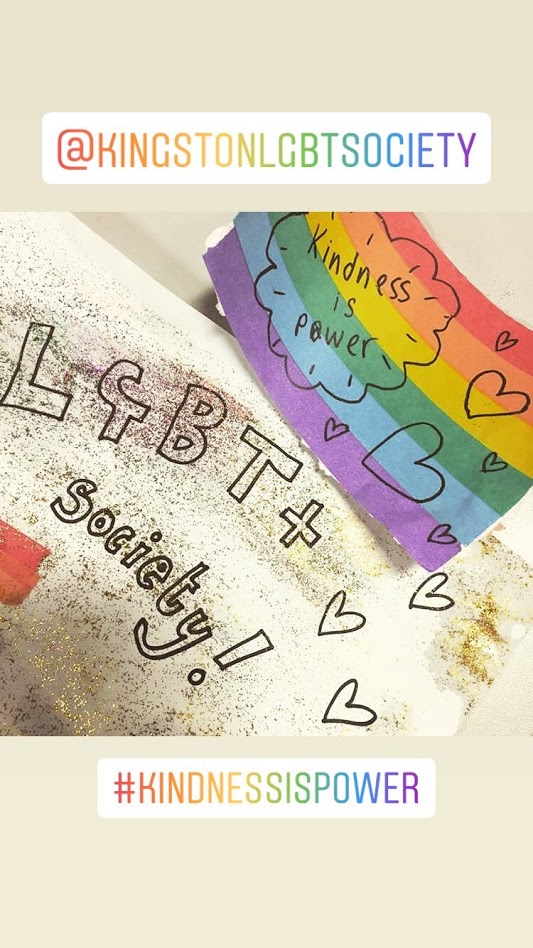 @KINGSTONLGBTSOCIETY
Kindness
is
power
LGBT+
Society!
#KINDNESSISPOWER